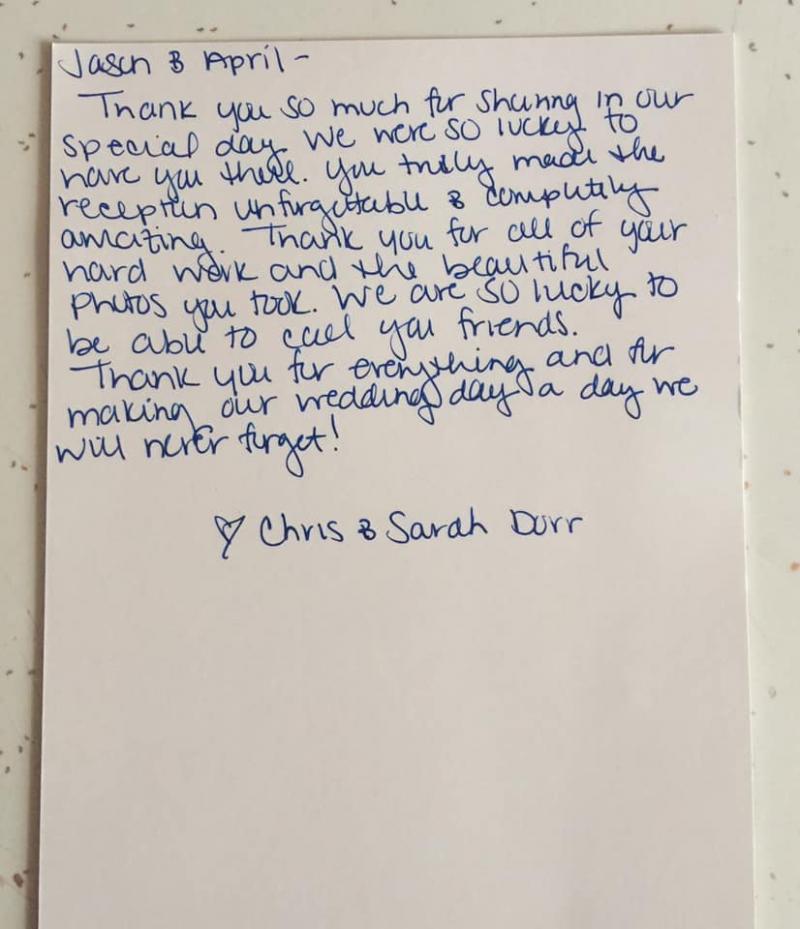 Jason & April -
Thank you so much for sharing in our
special day. We were so lucky to
have you there. You truly made the
reception unforgettable & completely
amazing. Thank you for all of your
hard work and the beautiful
photos you took. We are so lucky to
be able to call you friends.
Thank you for everything and for
making our wedding day a day we
will never forget!
♡ Chris & Sarah Durr